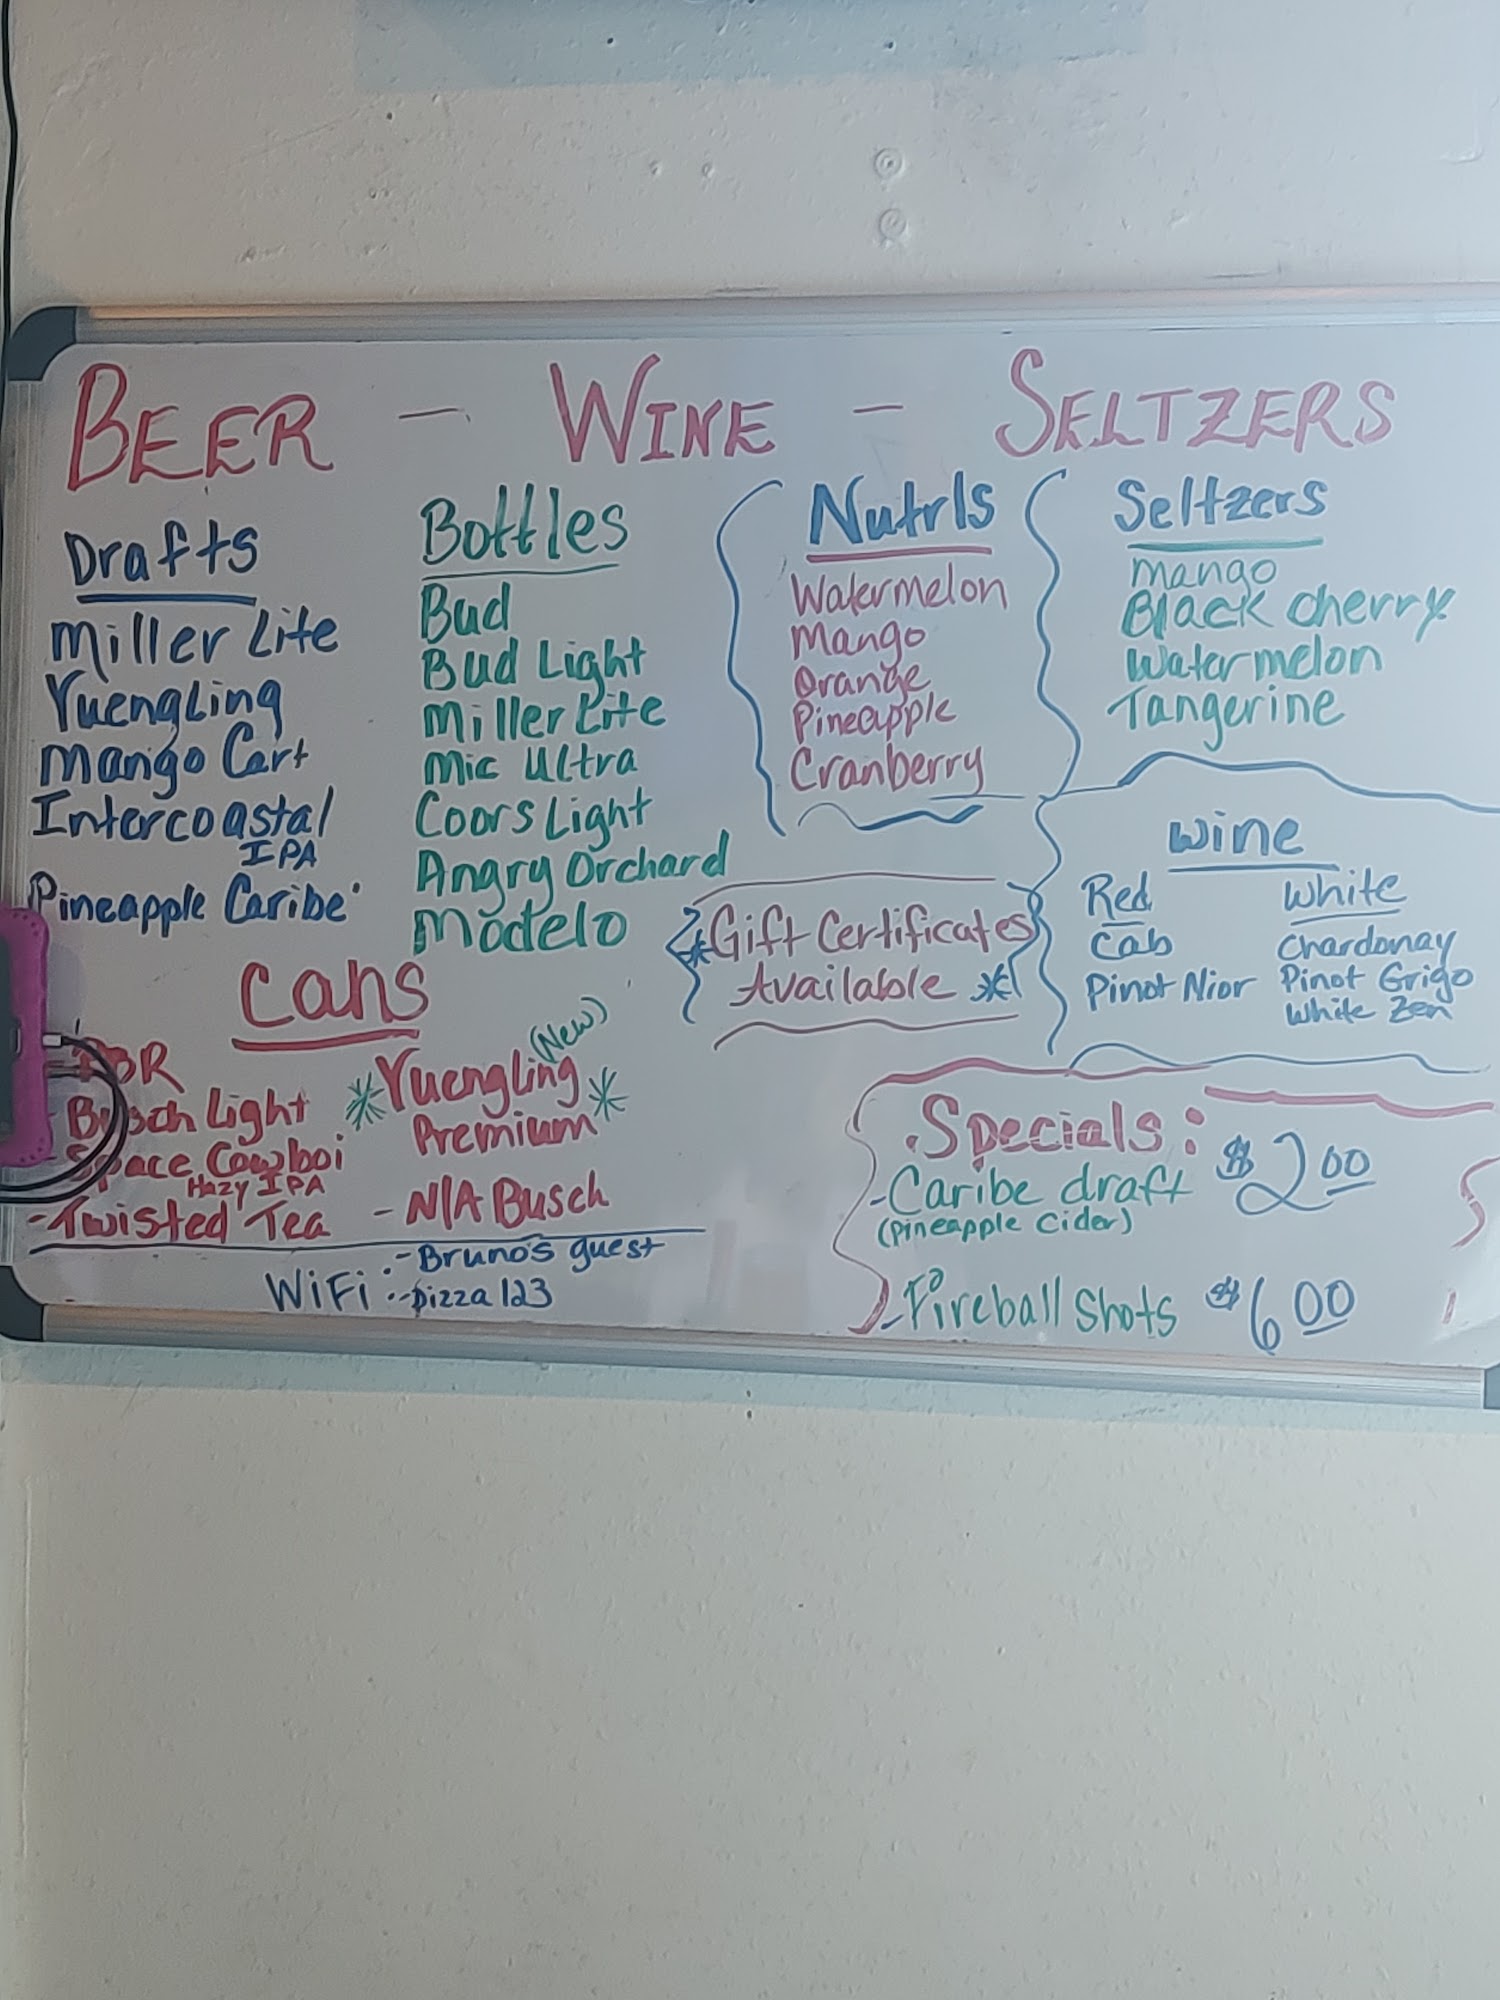 BEER - WINE - SELTZERS
Drafts
Miller Lite
Yuengling
Mango Cart
Intercoastal
IPA
Pineapple Caribe
Bottles
Bud
Bud Light
Miller Lite
Mic Ultra
Coors Light
Angry Orchard
Modelo
Nutrls
Watermelon
Mango
Orange
Pineapple
Cranberry
Seltzers
Mango
Black Cherry
Watermelon
Tangerine
*Gift Certificates
Available *
Wine
Red
Cab
Pinot Nior
White
Chardonay
Pinot Grigo
White Zen
Cans
PBR
- Busch Light
- Space Cowboi
Hazy IPA
- Twisted Tea
(New)
*Yuengling*
Premium
- N/A Busch
WiFi: - Bruno's guest
- pizza123
Specials:
- Caribe draft $2.00
(Pineapple Cider)
- Fireball Shots $6.00